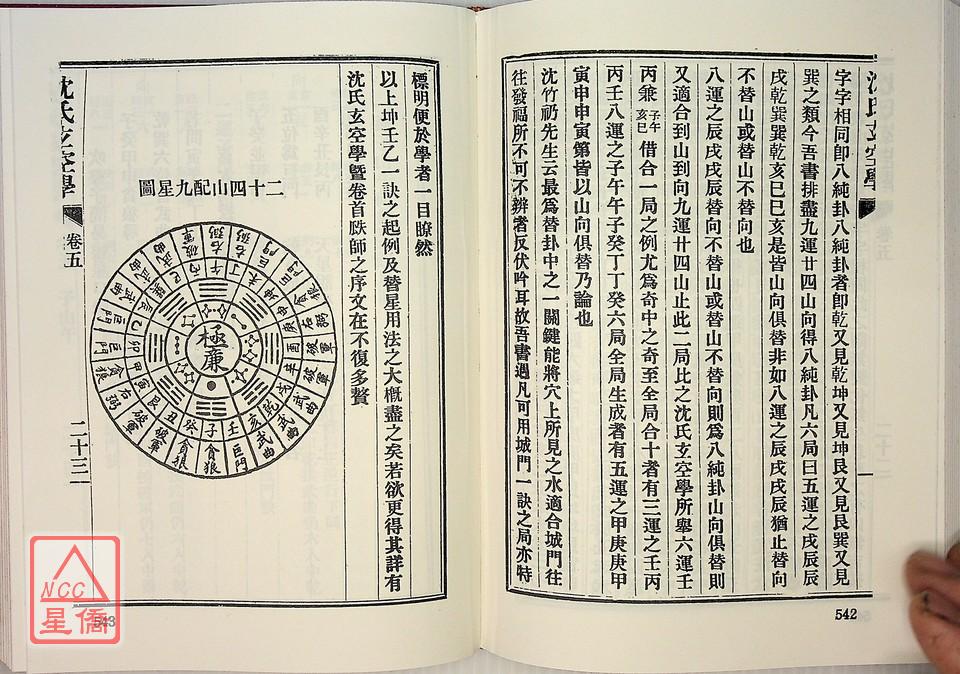 沈氏玄空學
字字相同卽八純卦八純卦者卽乾又見乾坤又見坤艮又見艮巽又見
巽之類今吾書排盡九運廿四山向得八純卦凡六局曰五運之戌辰辰
戌乾巽巽乾亥巳巳亥是皆山向俱替非如八運之辰戌戌辰猶止替向
不替山或替山不替向也
八運之辰戌戌辰替向不替山或替山不替向則爲八純卦山向俱替則
又適合到山到向九運廿四山止此二局比之沈氏玄空學所舉六運壬
丙兼子午亥巳借合一局之例尤爲奇中之奇至全局合十者有三運之壬丙
丙壬八運之子午午子癸丁丁癸六局全局生成者有五運之甲庚庚甲
寅申申寅第皆以山向俱替乃論也
沈竹礽先生云最爲替卦中之一關鍵能將穴上所見之水適合城門往
往發福所不可不辨者反伏吟耳故吾書遇凡可用城門一訣之局亦特
542
標明便於學者一目瞭然
以上坤壬乙一訣之起例及替星用法之大槪盡之矣若欲更得其詳有
沈氏玄空學曁卷首胅師之序文在不復多贅
二十四山配九星圖
極廉
子 貪狼
癸 貪狼
丑 破軍
艮 破軍
寅 右弼
甲 貪狼
卯 巨門
乙 巨門
辰 武曲
巽 武曲
巳 武曲
丙 破軍
午 右弼
丁 右弼
未 巨門
坤 巨門
申 貪狼
庚 右弼
酉 破軍
辛 破軍
戌 武曲
乾 武曲
亥 武曲
壬 巨門
沈氏玄空學
卷五
二十三
543
NCC
星僑